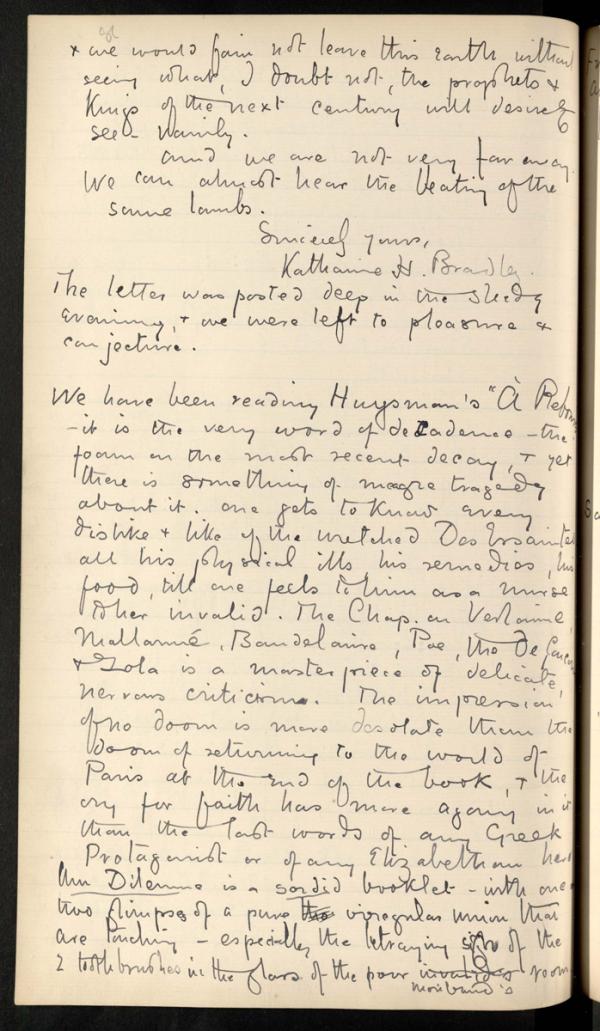 & we would fain not leave this earth without
seeing what, I doubt not, the prophets &
Kings of the next century will desire to
see - vainly.
And we are not very far away.
We can almost hear the bleating of the
same lambs.
Sincerely yours,
Katharine H. Bradley.
The letter was posted deep in the sleety
evening, & we were left to pleasure &
conjecture.
We have been reading Huysman's "À Rebours"
- it is the very word of decadence - the
foam on the most recent decay, & yet
there is something of meagre tragedy
about it. One gets to know every
dislike & like of the wretched Des Esseintes
all his physical ills, his remedies, his
food, till one feels to him as a nurse
to her invalid. The Chap. on Verlaine,
Mallarmé, Baudelaire, Poe, the De Goncourts
& Zola is a masterpiece of delicate,
nervous criticism. The impression
of no doom is more desolate than the
doom of returning to the world of
Paris at the end of the book, & the
cry for faith has more agony in it
than the last words of any Greek
Protagonist or of any Elizabethan hero
Un Dilemme is a sordid booklet - with one
two glimpses of a pure irregular union that
are touching - especially the betraying of the
2 toothbrushes in the glass of the poor invalid's room
moribund's